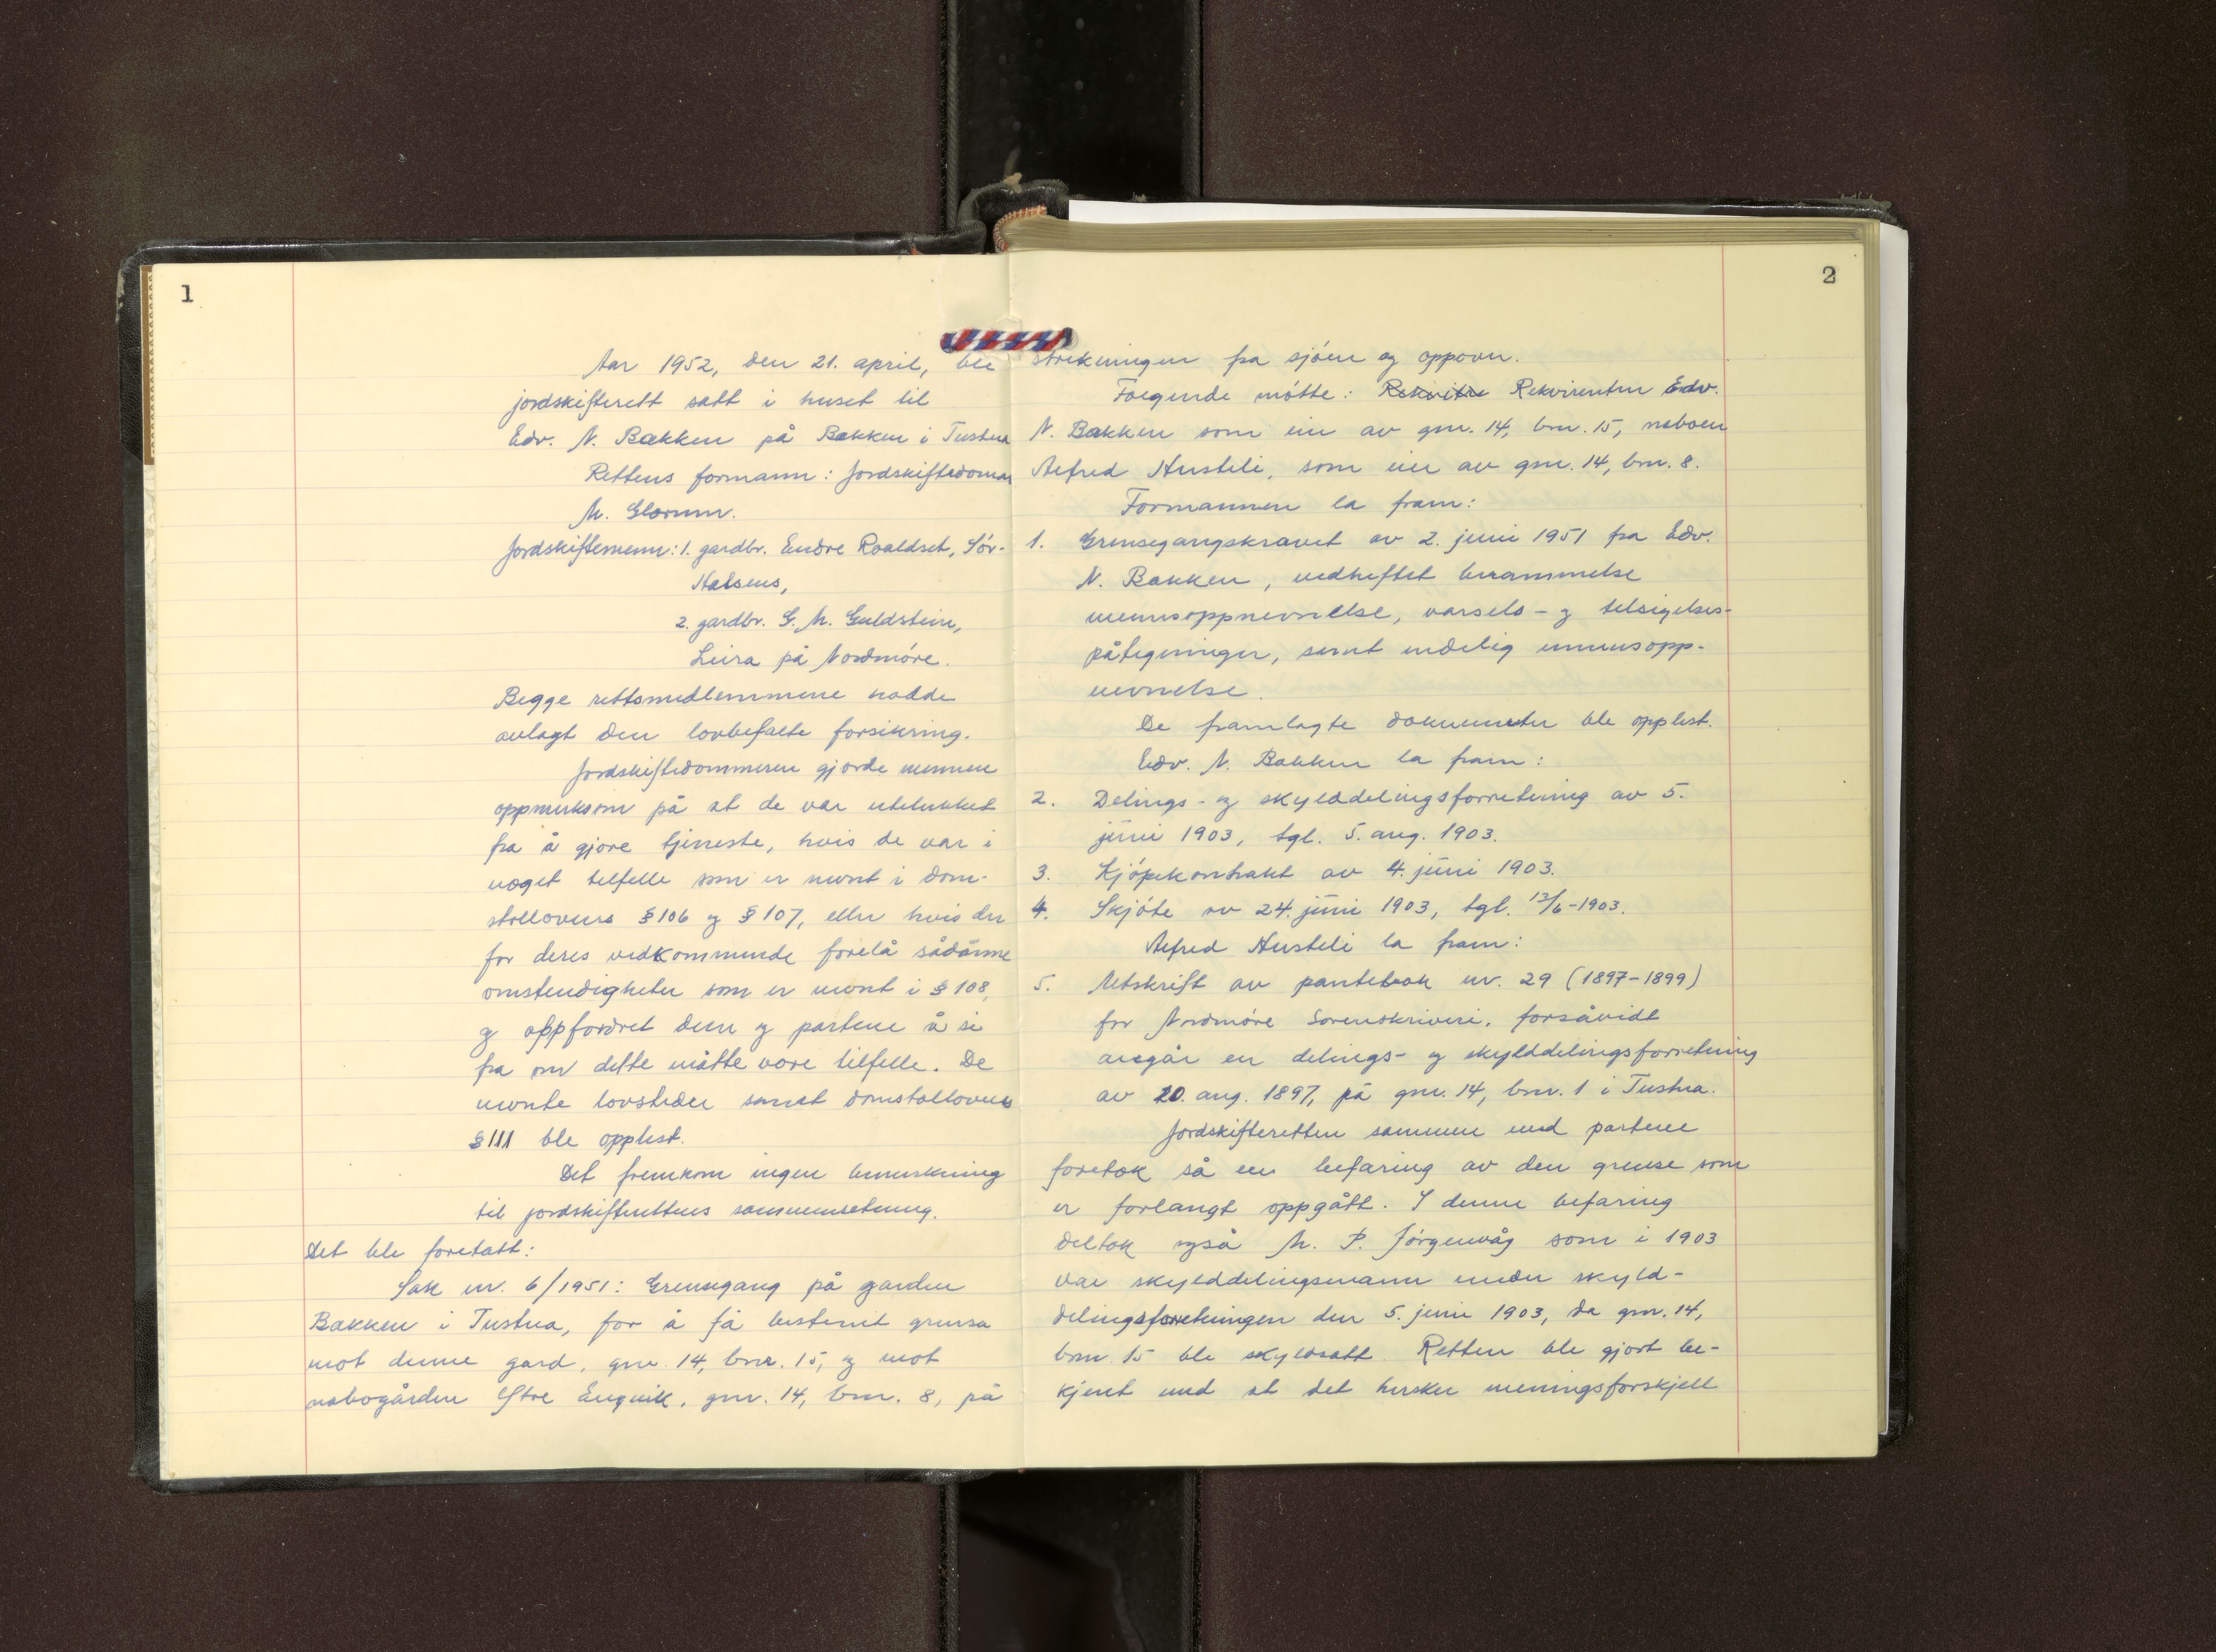 1
Aar 1952, den 21. april, ble
jordskifterett satt i huset til
Edv. N. Bakken på Bakken i Tustna
Rettens formann: Jordskiftedommar
M. Glærum.
Jordskiftemenn: 1. gardbr. Endre Roaldset, Sør-
Halsens,
2. gardbr. G. M. Guldstein,
Leira på Nordmøre.
Begge rettsmedlemmene hadde
avlagt den lovbefalte forsikring.
Jordskiftedommeren gjorde mennene
oppmerksom på at de var utelukket
fra å gjøre tjeneste, hvis de var i
noget tilfelle som er nevnt i dom-
stollovens § 106 og § 107, eller hvis der
for deres vedkommende forelå sådanne
omstendigheter som er nevnt i § 108,
og oppfordret dem og partene å si
fra om dette måtte være tilfelle. De
nevnte lovsteder samt domstollovens
§ 111 ble opplest.
Det fremkom ingen bemerkning
til jordskifterettens sammensetning.
Det ble foretatt:
Sak nr. 6/1951: Grensegang på garden
Bakken i Tustna, for å få bestemt grensa
mot denne gard, gnr. 14, bnr. 15, og mot
nabogården Ytre Engvik, gnr. 14, bnr. 8, på
2
strekningen fra sjøen og oppover.
Følgende møtte: Rekvitre Rekvirenten Edv.
N. Bakken som eier av gnr. 14, bnr. 15, naboen
Alfred Husteli, som eier av gnr. 14, bnr. 8.
Formannen la fram:
1. Grensegangskravet av 2. juni 1951 fra Edv.
N. Bakken, vedheftet berammelse
mennsoppnevnelse, varsels- og tilsigelses-
påtegninger, samt endelig mennsopp-
nevnelse.
De framlagte dokumenter ble opplest.
Edv. N. Bakken la fram:
2. Delings- og skylddelingsforretning av 5.
juni 1903, tgl. 5. aug. 1903.
3. Kjøpekontrakt av 4. juni 1903.
4. Skjøte av 24. juni 1903, tgl. 13/6-1903.
Alfred Husteli la fram:
5. Utskrift av pantebok nr. 29 (1897-1899)
for Nordmøre Sorenskriveri, forsåvidt
angår en delings- og skylddelingsforretning
av 20. aug. 1897, på gnr. 14, bnr. 1 i Tustna.
Jordskifteretten sammen med partene
foretok så en befaring av den grense som
er forlangt oppgått. I denne befaring
deltok også M. P. Jørgenvåg som i 1903
var skylddelingsmann under skyld-
delingsforretningen den 5. juni 1903, da gnr. 14,
bnr. 15 ble skyldsatt. Retten ble gjort be-
kjent med at det hersker meningsforskjell